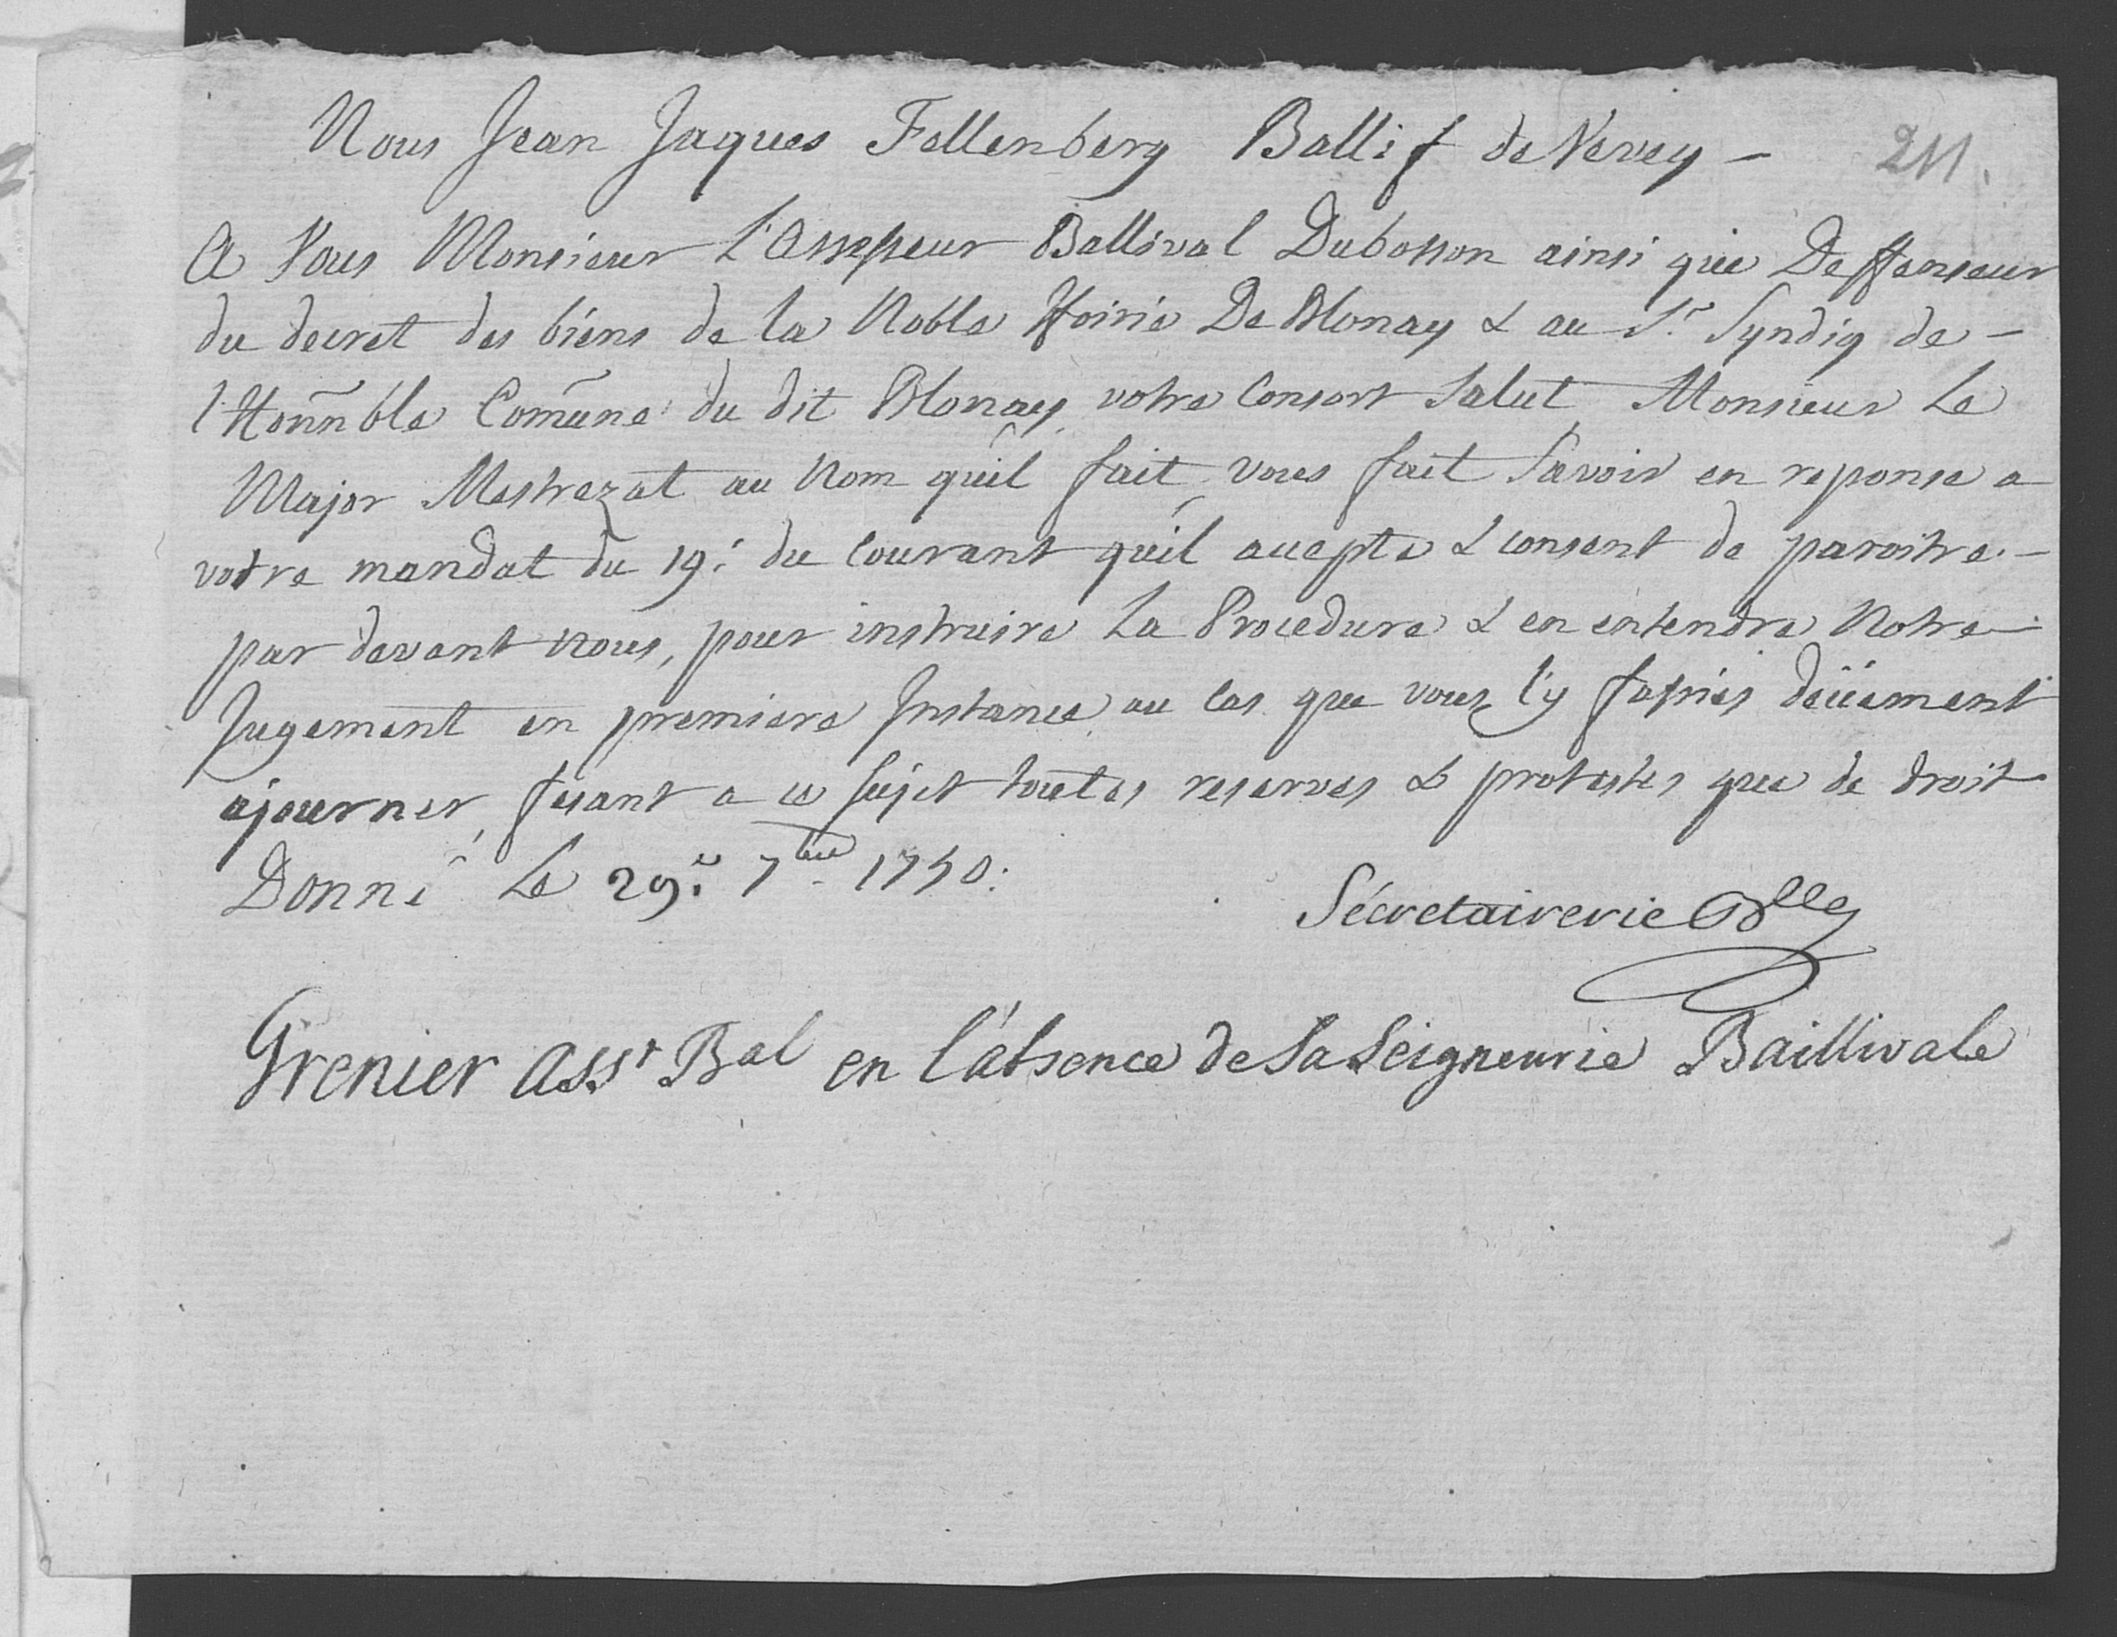 Nous Jean Jaques Fellenberg Ballif de Vevey - 211.
A Vous Monsieur L'Assesseur Ballival Dubosson ainsi que Deffenseur
du decret des biens de la Noble Hoirie De Blonay & au Sr. Syndiq de -
l'Honnble Comune du dit Blonay, votre Consort Salut, Monsieur Le
Major Mestrezat au Nom qu'il fait, vous fait Savoir en reponse a
votre mandat du 19e. du Courant qu'il accepte & consent de paroitre -
par devant nous, pour instruire La Procedure & en entendre Notre
Jugement en premiere Instance, au cas que vous l'y fassiés deüement
ajourner, fesant a ce sujet toutes reserves & protestes que de droit
Donné Le 29e. 7bre 1750:
Sécretairerie Blle
Grenier Asst Bal en l'absence de Sa Seigneurie Baillivale